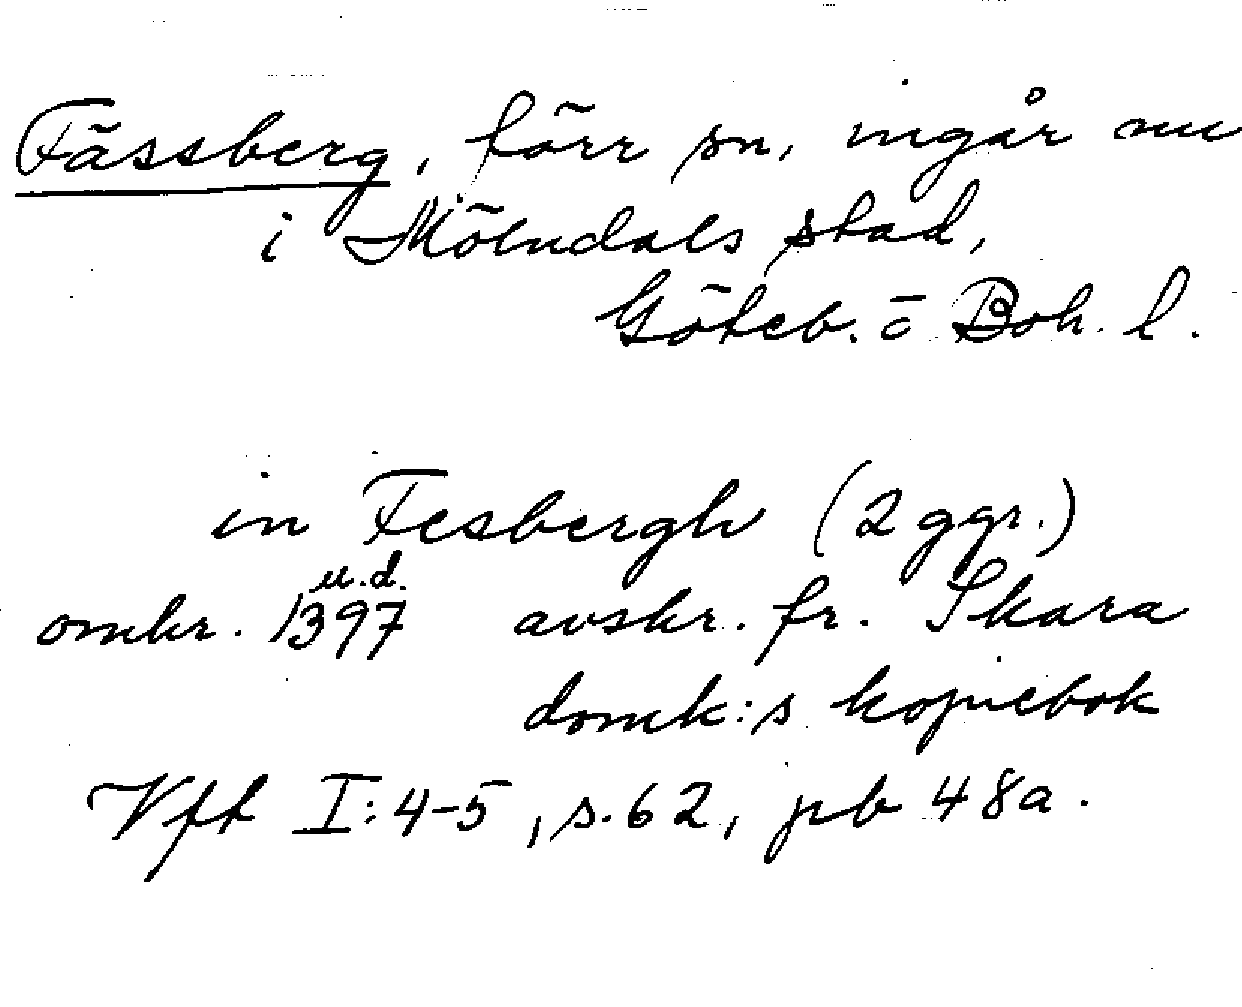 Fässberg, förr sn, ingår nu
i Mölndals stad,
Göteb. o Boh. l.
in Fesbergh (2 ggr.)
u.d.
omkr. 1397 avskr. fr. Skara
domk:s kopiebok
Vft I:4-5, s. 62, pb 48a.